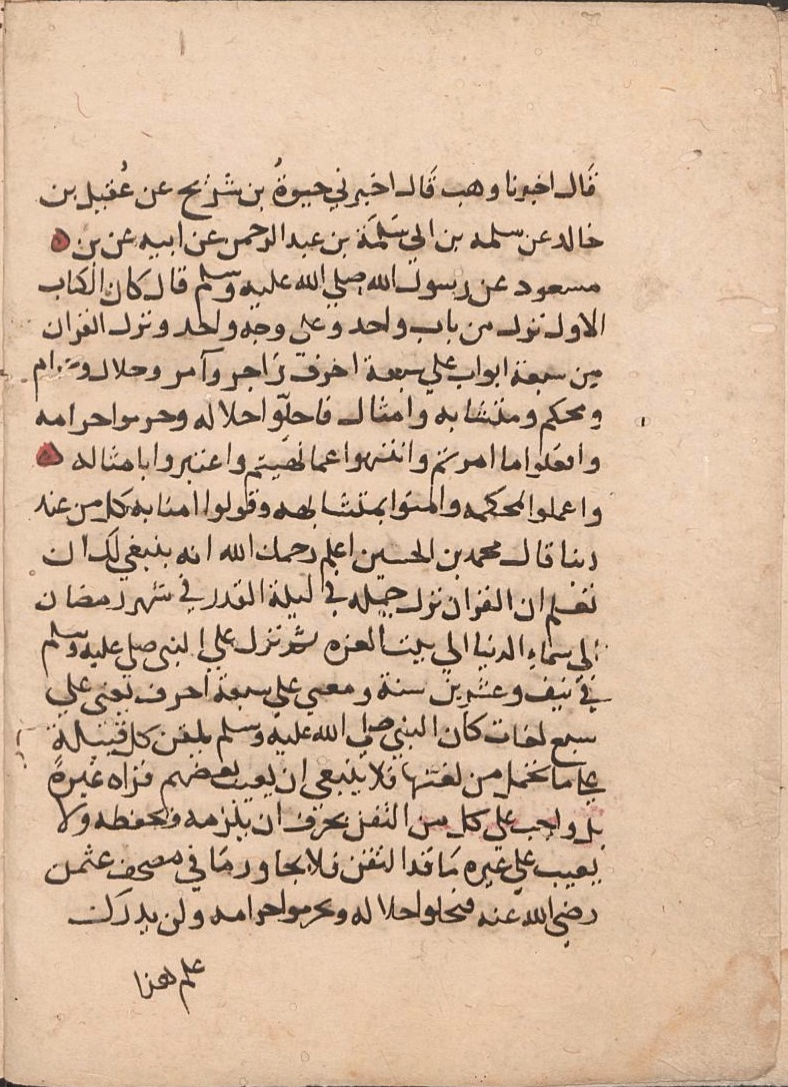 قَال اخبرنا وهب قَال اخبرني حيوةُ بن شريح عن عُقيل بن
خالد عن سلمه بن ابي سَلمَة بن عبد الرحمن عن ابيه عن بن
مسعود عن رسول الله صلي الله عليه وسلم قال كان الكتاب
الاول نزل من باب واحد وعلي وجه واحد ونزل القران
من سبعة ابواب علي سبعة احرف زاجر وآمر وحلال وحرام
ومحكم ومتشابه وامثال فاحلّوا حلاله وحرموا حرامه
وافعلوا ما امرتم وانتهوا عما نهيتم واعتبروا بامثاله
واعملوا بمحكمه وامنوا بمتشابهه وقولوا امنا به كل من عند
ربنا قال محمد بن الحسين اعلم رحمك الله انه ينبغي لك ان
تعلم ان القران نزل جمله في ليلة القدر في شهر رمضان
الي سماء الدنيا الي بيت العزه ثم نزل علي النبي صلي عليه وسلم
في نيف وعشرين سنة ومعني علي سبعة احرف يعني علي
سبع لغات كان النبي صلي الله عليه وسلم يلقن كل قبيلة
علي ما تحمل من لغتها فلا ينبغي ان يعيب بعضهم قراه غيره
بل واجب علي كل من التقن بحرف ان يلزمه ويحفظه ولا
يعيب علي غيره مَا قد التقن فلا يجاوز مَا في مصحف عثمن
رضي الله عنه فيحلوا حلاله ويحرموا حرامه ولن يدرك
علم هذا